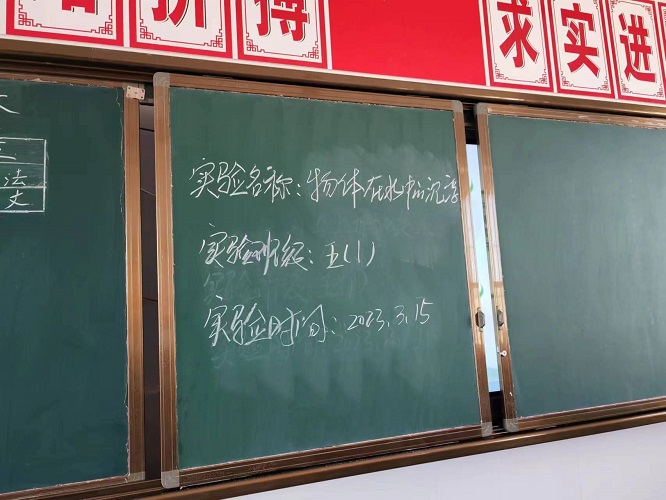 拼搏
求实进
文
法
文
实验名称：物体在水中的沉浮
实验班级：五(1)
实验时间：2023.3.15